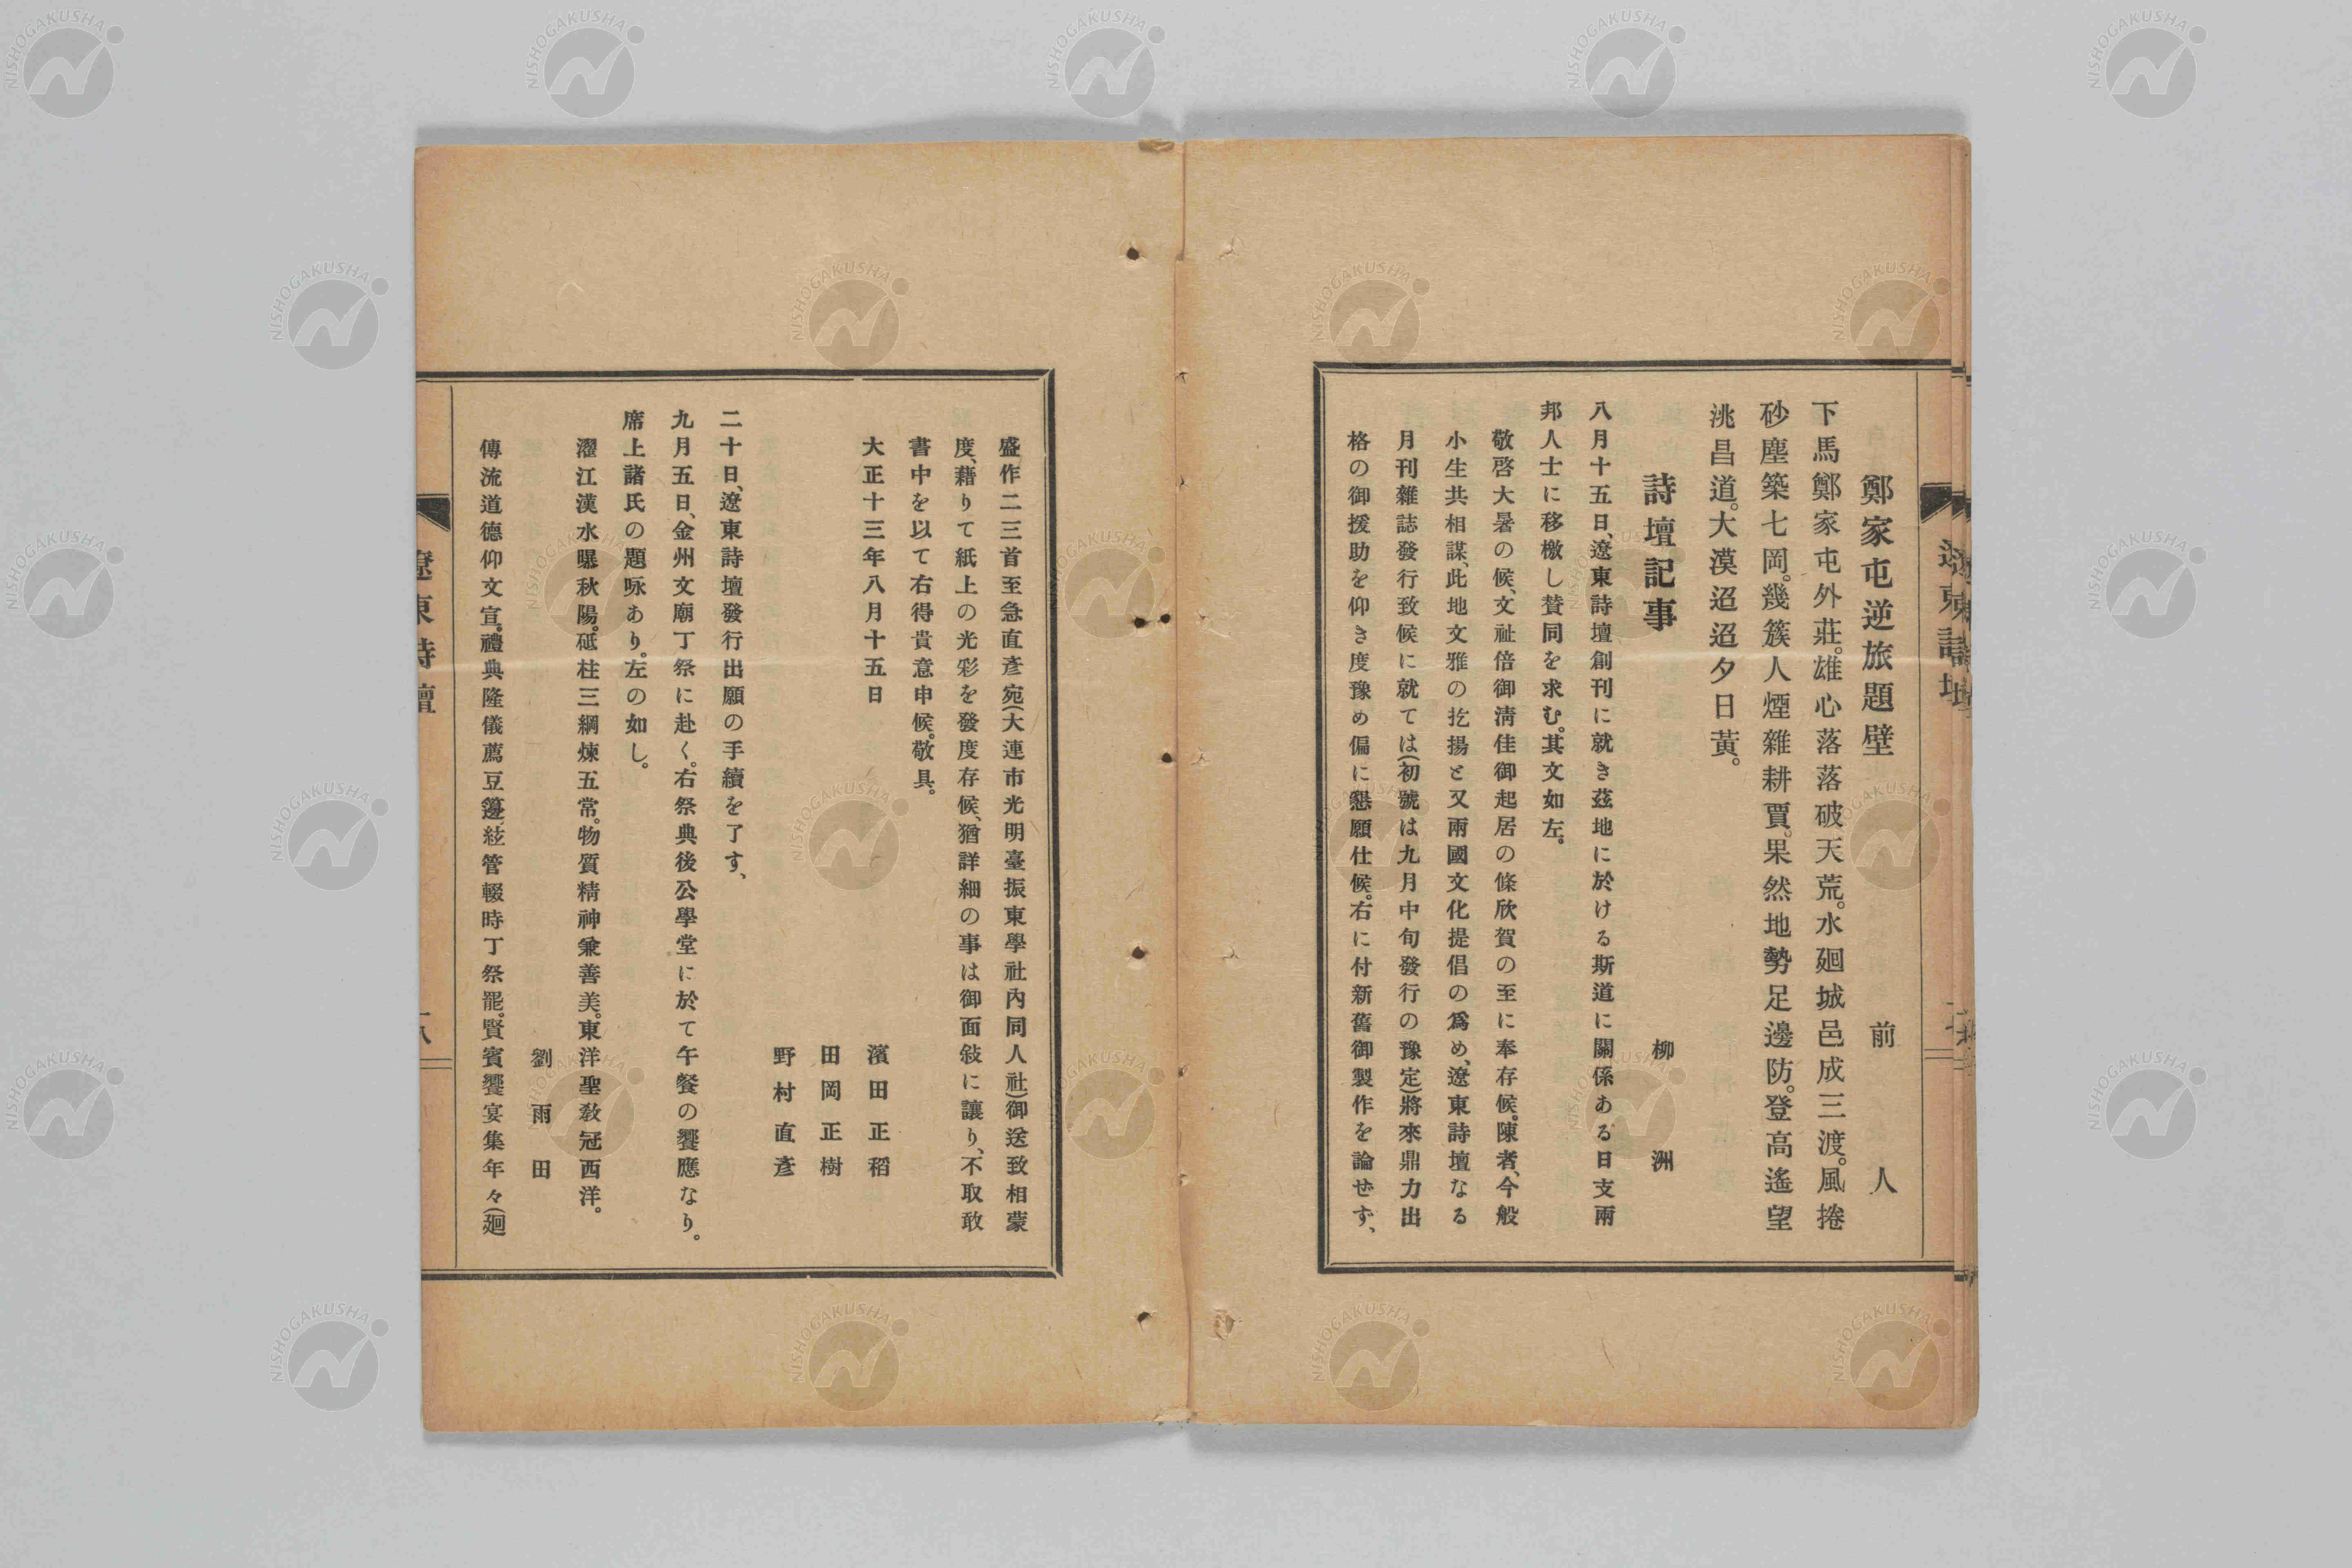 鄭家屯逆旅題壁　前人
下馬鄭家屯外莊。雄心落落破天荒。水廻城邑成三渡。風捲
砂塵築七岡。幾簇人煙雜耕賈。果然地勢足邊防。登高遙望
洮昌道。大漠迢迢夕日黃。
詩壇記事　柳洲
八月十五日、遼東詩壇創刊に就き茲地に於ける斯道に關係ある日支兩
邦人士に移檄し賛同を求む。其文如左。
敬啓大暑の候、文祉倍御淸佳御起居の條欣賀の至に奉存候。陳者、今般
小生共相謀、此地文雅の扢揚と又兩國文化提倡の爲め、遼東詩壇なる
月刊雜誌發行致候に就ては(初號は九月中旬發行の豫定)將來鼎力出
格の御援助を仰き度豫め偏に懇願仕候。右に付新舊御製作を論せず、
盛作二三首至急直彥宛(大連市光明臺振東學社内同人社)御送致相蒙
度、藉りて紙上の光彩を發度存候、猶詳細の事は御面敍に讓り、不取敢
書中を以て右得貴意申候。敬具。
大正十三年八月十五日
濱田正稻
田岡正樹
野村直彥
二十日、遼東詩壇發行出願の手續を了す、
九月五日、金州文廟丁祭に赴く。右祭典後公學堂に於て午餐の饗應なり。
席上諸氏の題咏あり。左の如し。
濯江漢水曝秋陽。砥柱三綱煉五常。物質精神兼善美。東洋聖敎冠西洋。
劉雨田
傳流道德仰文宣。禮典隆儀薦豆籩。絃管輟時丁祭罷。賢賓饗宴集年々(廻
遼東詩壇